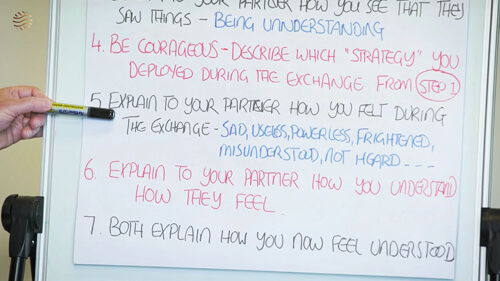 TO YOUR PARTNER HOW YOU SEE THAT THEY
SAW THINGS - BEING UNDERSTANDING
4. BE COURAGEOUS - DESCRIBE WHICH "STRATEGY" YOU
DEPLOYED DURING THE EXCHANGE FROM STEP 1
5. EXPLAIN TO YOUR PARTNER HOW YOU FELT DURING
THE EXCHANGE - SAD, USELESS, POWERLESS, FRIGHTENED,
MISUNDERSTOOD, NOT HEARD - - -
6. EXPLAIN TO YOUR PARTNER HOW YOU UNDERSTAND
HOW THEY FEEL.
7. BOTH EXPLAIN HOW YOU NOW FEEL UNDERSTOOD